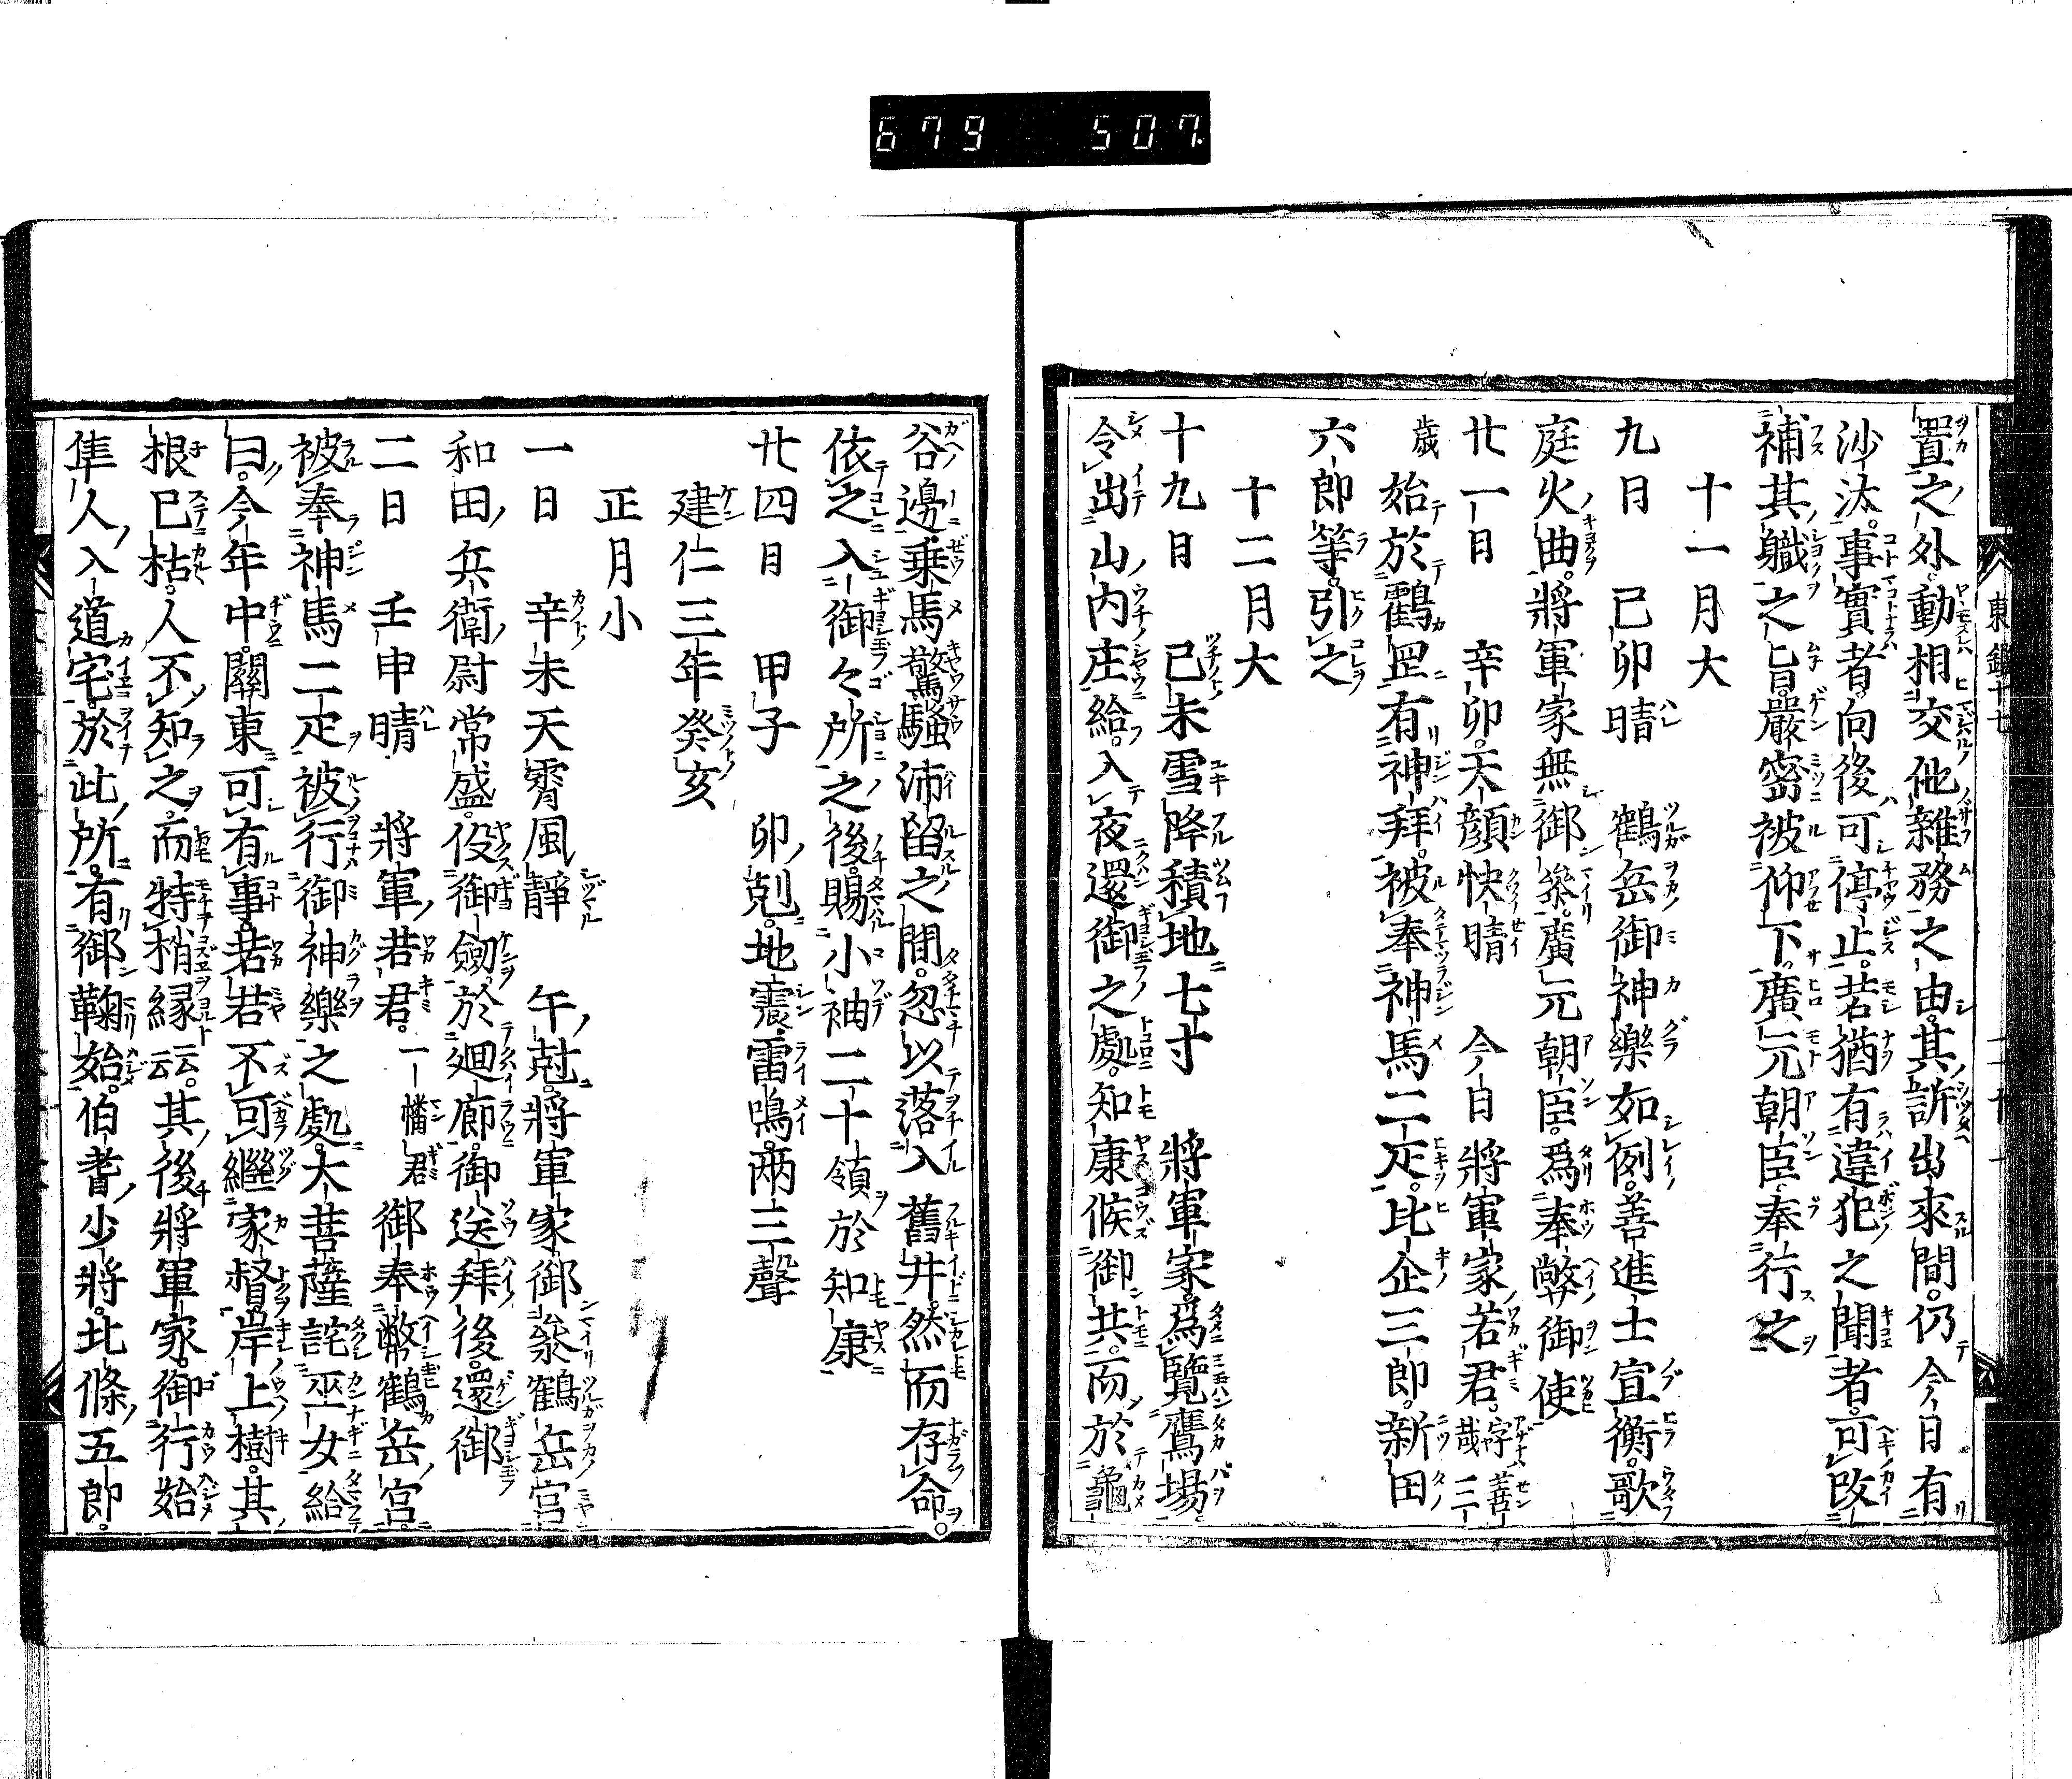 679 507
置之外動相交他雜務之由其訴出來間仍今日有
沙汰事實者向後可停止若猶有違犯之聞者可改
補其職之旨嚴密被仰下廣元朝臣奉行之
十一月大
九日 己卯晴 鶴岳御神樂如例善進士宣衡歌
庭火曲將軍家無御參廣元朝臣爲奉幣御使
廿一日 辛卯天顏快晴 今日將軍家若君字善哉三
歲始於鶴罡有神拜被奉神馬二疋比企三郎新田
六郎等引之
十二月大
十九日 己未雪降積地七寸 將軍家爲覽鷹場
令出山内庄給入夜還御之處知康候御共而於龜
谷邊乗馬驚騷沛䧟之間忽以落入舊井然而存命
依之入御々所之後賜小袖二十領於知康
廿四日 甲子 卯剋地震雷鳴兩三聲
建仁三年癸亥
正月小
一日 辛未天霽風靜 午尅將軍家御參鶴岳宮
和田兵衛尉常盛役御劔於廻廊御送拜後還御
二日 壬申晴 將軍若君一幡君御奉幣鶴岳宮
被奉神馬二疋被行御神樂之處大菩薩詫巫女給
曰今年中關東可有事若君不可繼家督岸上樹其
根已枯人不知之而特梢緑云云其後將軍家御行始
隼人入道宅於此所有御鞠始伯耆少將北條五郎